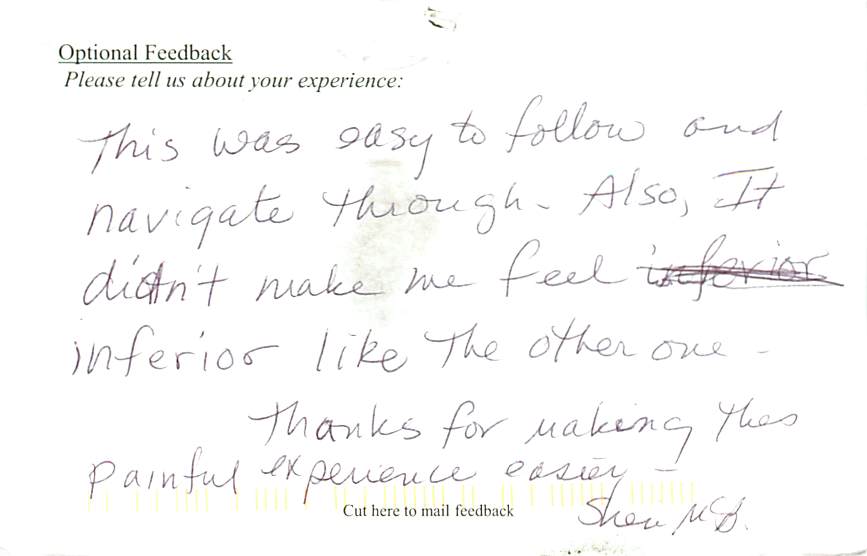 Optional Feedback
Please tell us about your experience:
This was easy to follow and
navigate through. Also, It
didn't make me feel inferior
inferior like The other one -
Thanks for making this
painful experience easier -
Cut here to mail feedback